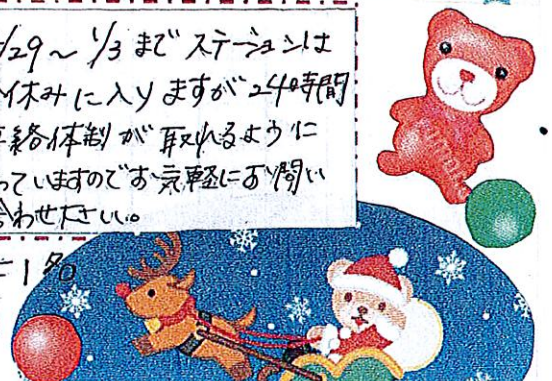 /29～1/3まで ステーションは
休みに入りますが24時間
絡体制が取れるように
っていますのでお気軽にお問い
合わせ下さい。
1名